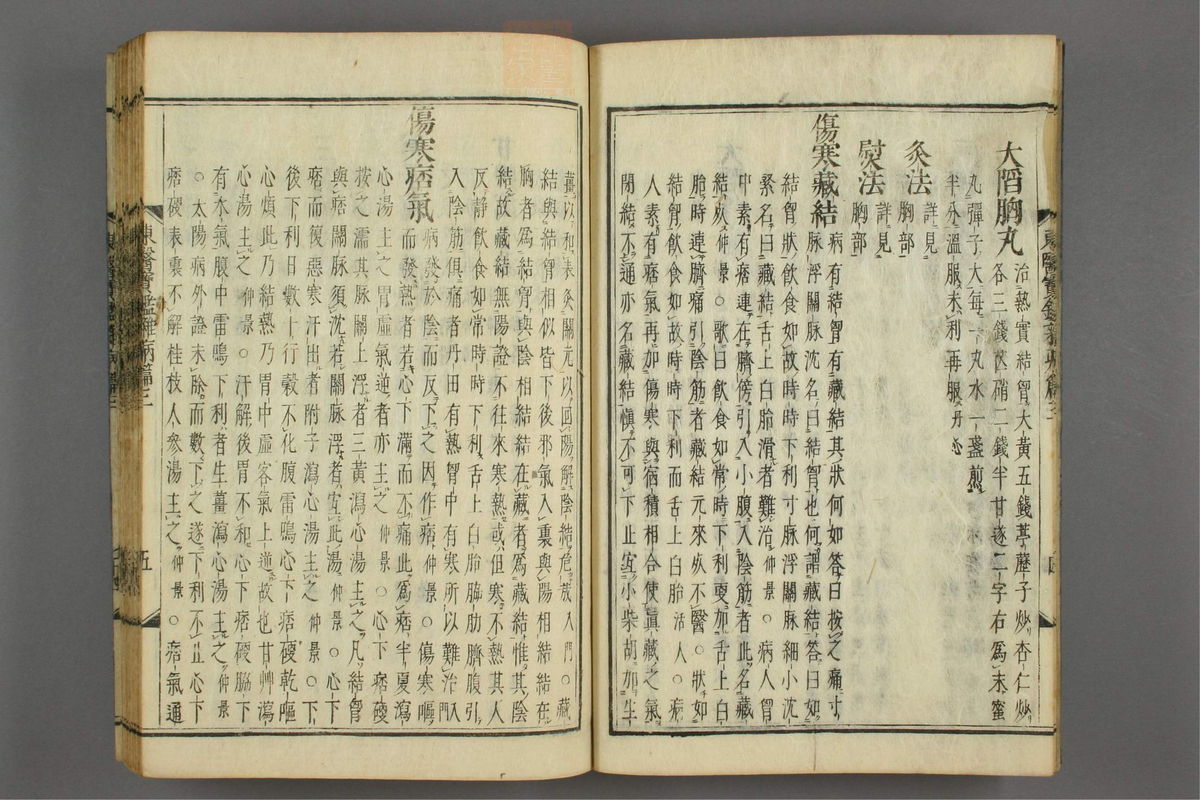 大陷胸丸 治熱實結胷大黃五錢葶藶子炒杏仁炒
各三錢芒硝二錢半甘遂二字右爲末蜜
丸彈子大每一丸水一盞煎
半分溫服未利再服丹心
灸法 詳見
胸部
熨法 詳見
胸部
傷寒藏結 病有結胷有藏結其狀何如答曰按之痛寸
脉浮關脉沈名曰結胷也何謂藏結答曰如
結胷狀飮食如故時時下利寸脉浮關脉細小沈
緊名曰藏結舌上白胎滑者難治仲景○病人胷
中素有痞連在臍傍引入小腹入陰筋者此名藏
結死仲景○歌曰飮食如常時下利更加舌上白
胎時連臍痛引陰筋者藏結元來死不醫○狀如
結胷飮食如故時時下利而舌上白胎活人○病
人素有痞氣再加傷寒與宿積相合使眞藏之氣
閉結不通亦名藏結愼不可下止宜小柴胡加生
薑以和表灸關元以回陽解陰結危荒入門○藏
結與結胷相似皆下後邪氣入裏與陽相結結在
胸者爲結胷與陰相結結在藏者爲藏結惟其陰
結故藏結無陽證不往來寒熱或但寒不熱其人
反靜飮食如常時時下利舌上白胎脇肋臍腹引
入陰筋俱痛者丹田有熱胷中有寒所以難治入門
傷寒痞氣 病發於陰而反下之因作痞仲景○傷寒嘔
而發熱者若心下滿而不痛此爲痞半夏瀉
心湯主之胃虛氣逆者亦主之仲景○心下痞硬
按之濡其脉關上浮者三黃瀉心湯主之凡結胷
與痞關脉須沈若關脉浮者宜此湯仲景○心下
痞而復惡寒汗出者附子瀉心湯主之仲景○下
後下利日數十行穀不化腹雷鳴心下痞硬乾嘔
心煩此乃結熱乃胃中虛客氣上逆故也甘艸瀉
心湯主之仲景○汗解後胃不和心下痞硬脇下
有水氣腹中雷鳴下利者生薑瀉心湯主之仲景
○太陽病外證未除而數下之遂下利不止心下
痞硬表裏不解桂枝人參湯主之仲景○痞氣通
東醫寶鑑雜病篇三
五